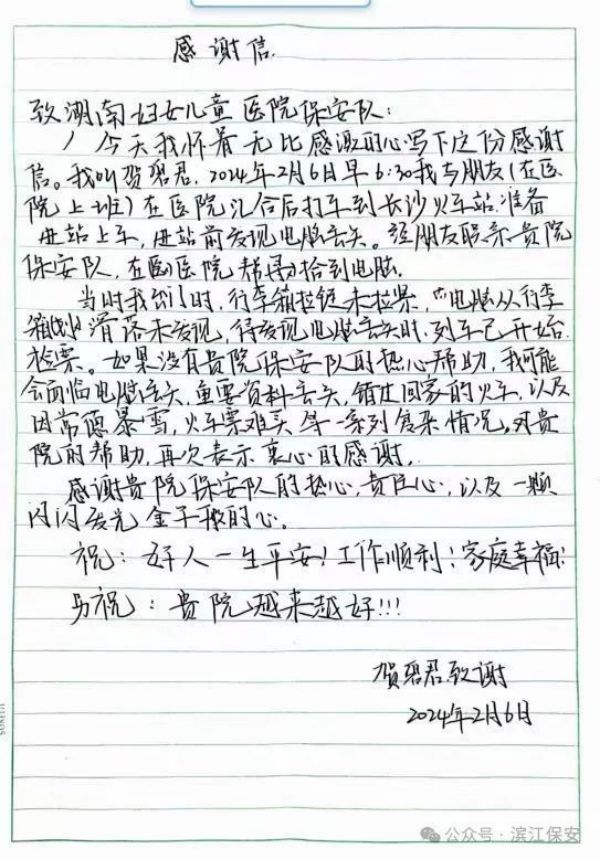 感谢信.
致湖南妇女儿童医院保安队:
今天我怀着无比感激的心写下这份感谢
信。我叫贺碧君. 2024年2月6日早6:30我与朋友(在医
院上班)在医院汇合后打车到长沙火车站.准备
进站上车,进站前发现电脑丢失。经朋友联系贵院
保安队,在医院帮助拾到电脑.
当时我们时,行李箱拉链未拉果,电脑从行李
箱滑落未发现,待发现电脑丢失时.列车已开始.
检票。如果没有贵院保安队的热心帮助,我可能
会面临电脑丢失,重要资料丢失,错过回家的火车,以及
因常德暴雪,火车票难买等一系列复杂情况.对贵
院的帮助,再次表示衷心的感谢.
感谢贵院保安队的热心,责任心,以及一颗
闪闪发光金子般的心。
祝:好人一生平安!工作顺利!家庭幸福!
另祝:贵院越来越好!!!
贺碧君致谢
2024年2月6日
公众号·滨江保安